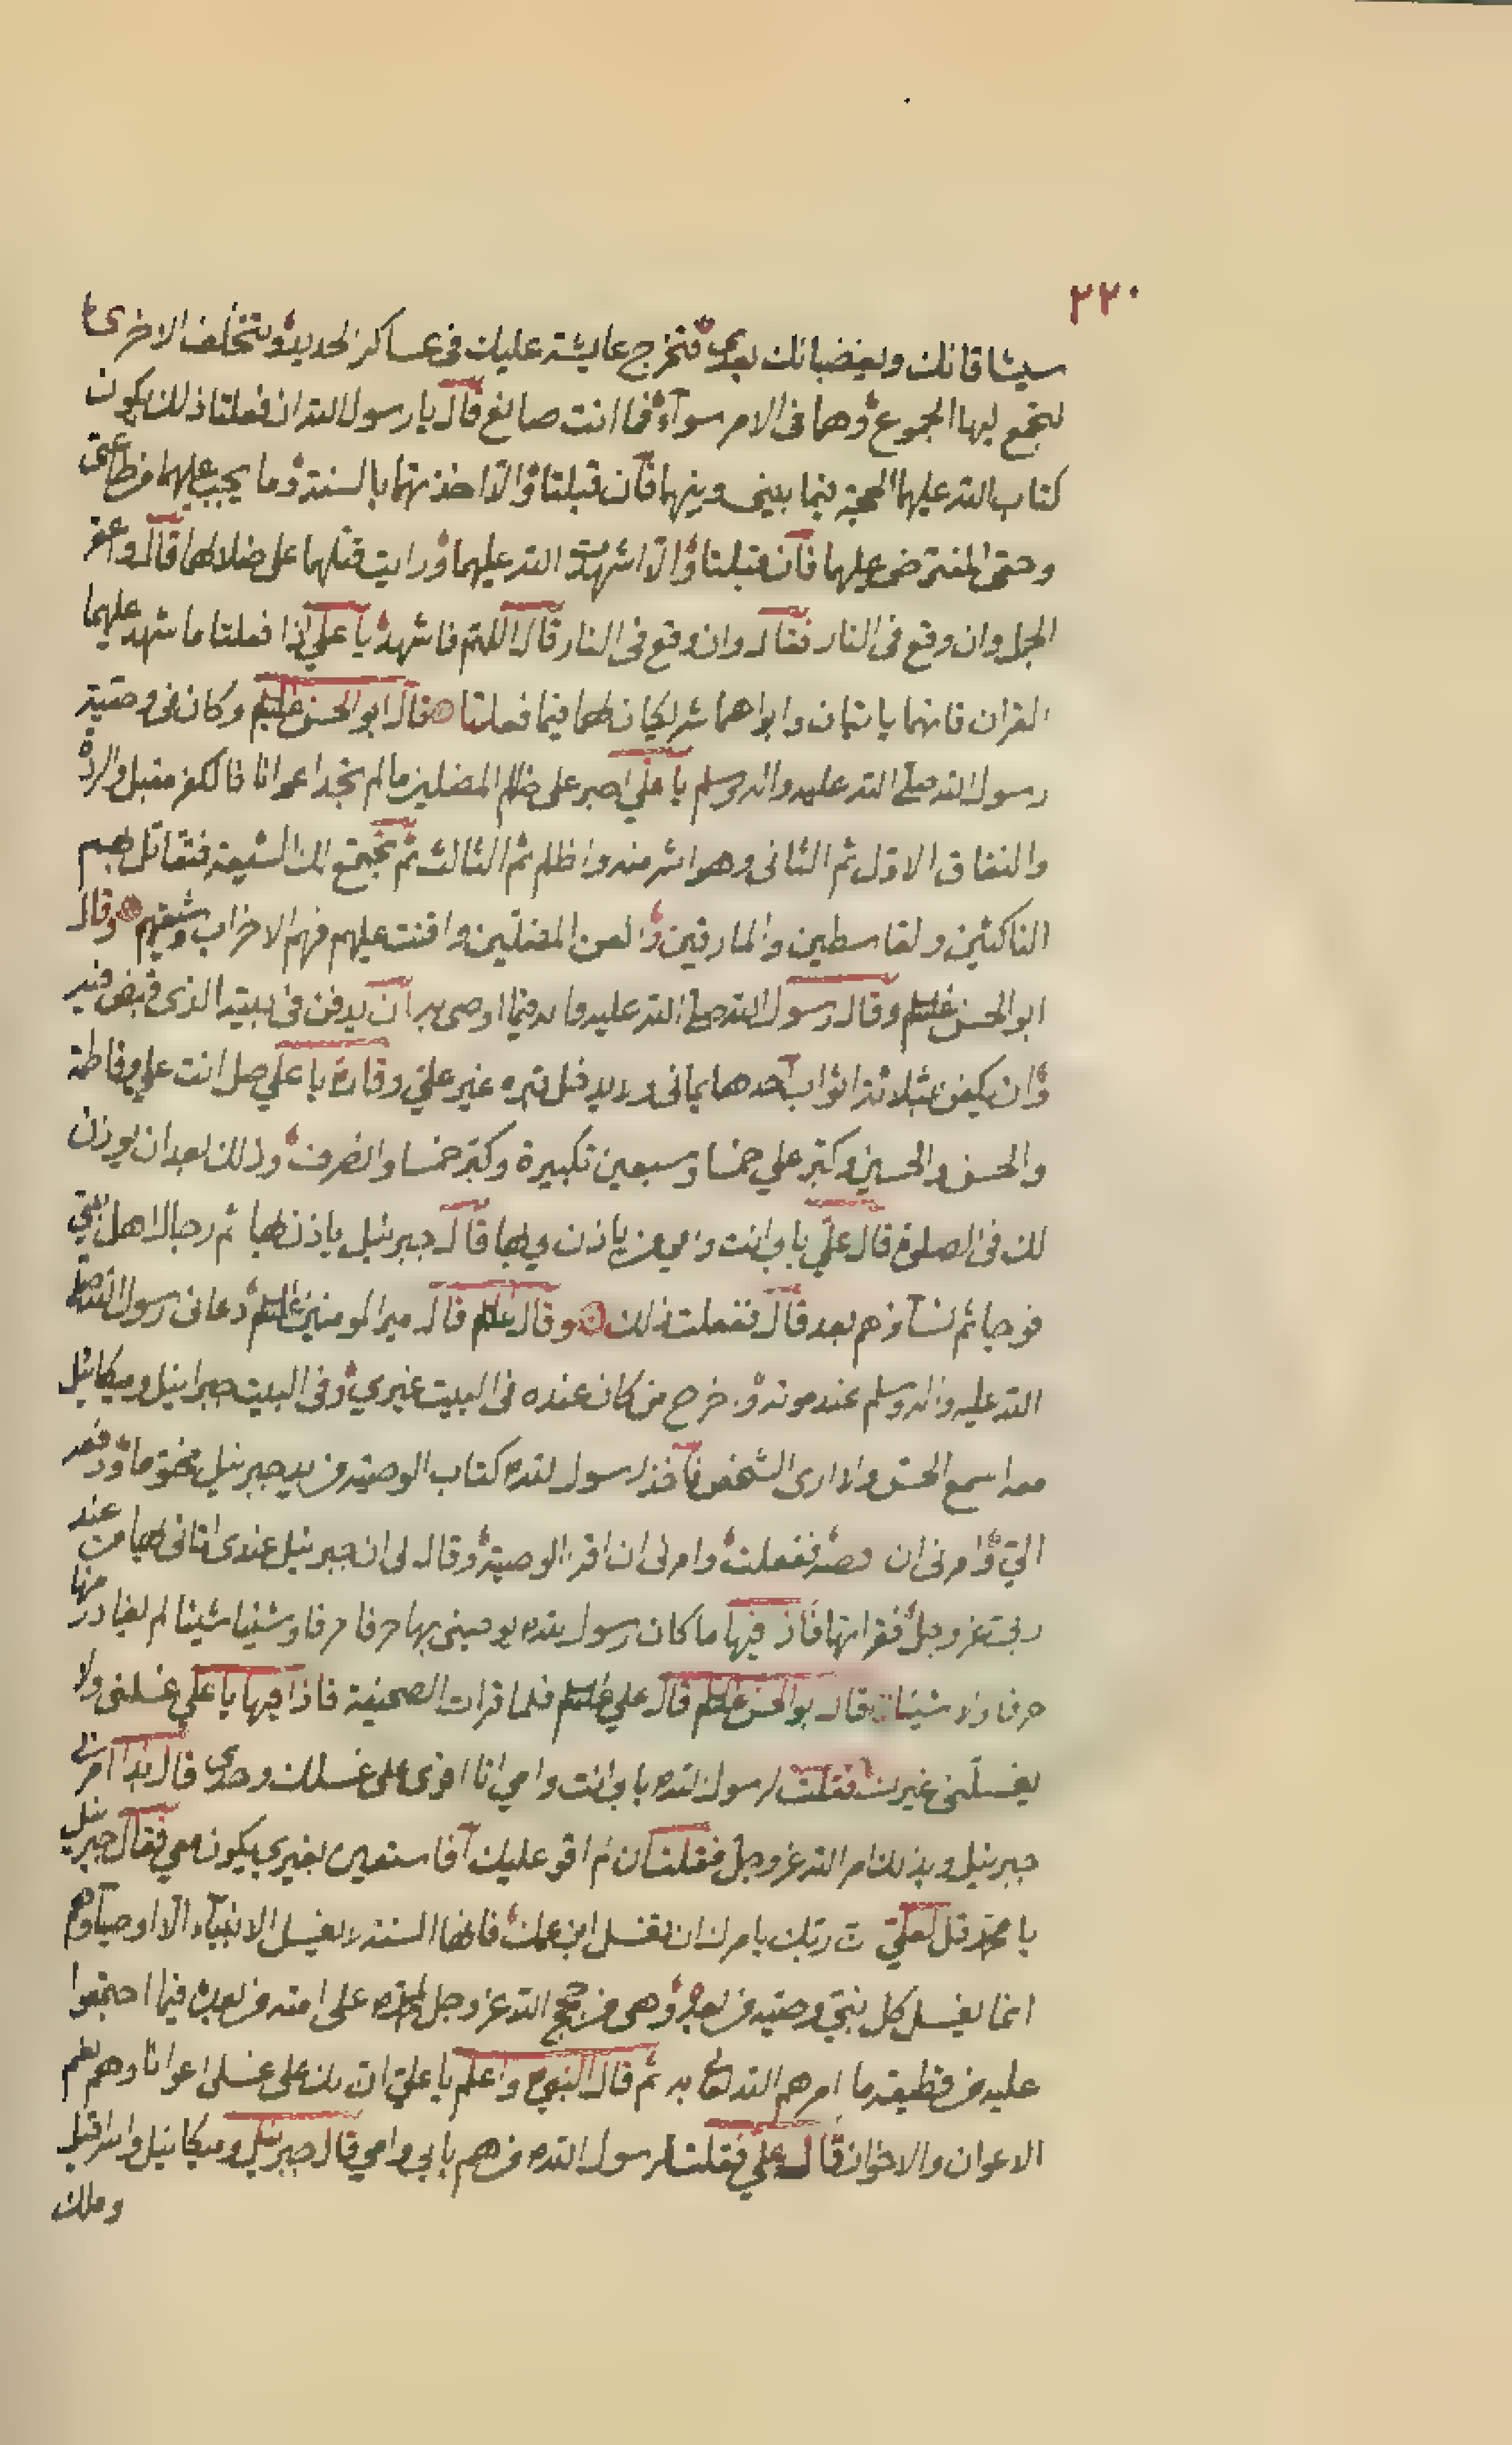 ٢٢٠
سيشاقانك ويغضبانك بعدي فتخرج عايشة عليك في عساكر الحديد وتتخلف الاخرى
لتجمع ليها الجموع وهما في الامر سوآء فما انت صانع قال يا رسول الله ان فعلتا ذلك يكون
كتاب الله عليهما الحجة فيما بيني وبينهما فان قبلتا والا اخذتهما بالسنة وما يجب عليهما من طاعتي
وحقي المفترض عليهما فان قبلتا والا اشهدت الله عليهما ورايت قتلهما على ضلالهما قال وا عقر
الجمل وان وقع في النار فقال وان وقع في النار قال اللهم فاشهد يا علي اذا فعلتا ما شهد عليهما
القران فانهما يابتان وابواهما شريكان لهما فيما فعلتا قال ابو الحسن عليلم وكان في وصية
رسول الله صلى الله عليه واله وسلم يا علي اصبر على ظلم المضلين ما لم تجد اعوانا فالكفر مقبل والردة
والنفاق الاول ثم الثاني وهو اشر منه واظلم ثم الثالث ثم تجتمع لك الشيعة فتقاتل بهم
الناكثين ولقاسطين والمارقين والعن المضلين واقنت عليهم فهم الاحزاب وشيعتهم وقال
ابو الحسن عليلم وقال رسول الله صلى الله عليه واله فيما اوصى به ان يدفن في بيته الذي قبض فيه
وان يكفن بثلاثة اثواب احدهما يماني ولا يدخل قبره غير علي وقال يا علي صل انت علي وفاطمة
والحسن والحسين وكبر علي خمسا وسبعين تكبيرة وكبر خمسا وانصرف وذلك بعد ان يوذن
لك في الصلوة قال علي بابي انت وامي من ياذن لي بها قال جبرئيل ياذن بها ثم رجال اهل بيتي
فوجا ثم نسآوهم بعد قال ففعلت ذلك وقال عليلم قال مير المومنين عليلم دعاني رسول الله صلى
الله عليه واله وسلم عند موته و خرج من كان عنده في البيت غيري وفي البيت جبرائيل وميكائيل
معه اسمع الحس ولا ارى الشخص فاخذ رسول لله كتاب الوصية من يد جبرئيل مختوما ودفعه
الي وامرني ان فضه ففعلت وامرني ان اقر الوصية وقال لي ان جبرئيل عندي اتاني بها من عند
ربي عز وجل فقراتها فاذ فيها ما كان رسول لله يوصيني بها حرفا حرفا وشيئا شيئا لم يغادر منها
حرفا ولا شيئا قال بو الحسن عليلم قال علي عليلم فلما قرات الصحيفة فاذا فيها يا علي غسلني ولا
يغسلني غيرك فقلت لرسول الله بابي انت وامي انا اقوى على غسلك وحدي قال بذا امرني
جبرئيل وبذلك امر الله عز وجل فقلت ان لم اقو عليك افاستعين بغيري يكون معي فقال جبرئيل
يا محمد قل لعلي ن ربك يامرك ان تغسل ابن عمك فانها السنة لا يغسل الانبياء الا اوصياوهم
انما يغسل كل نبي وصيه من بعده وهي من حجج الله عز وجل لمحمد على امته من بعده فيما اجتمعوا
عليه من قطيعة ما امرهم الله تعالى به ثم قال النبي واعلم يا علي ان لك على غسلي اعوانا وهم نعم
الاعوان والاخوان قال علي فقلت لرسول الله من هم بابي وامي قال جبرئيل وميكائيل واسرافيل
وملك